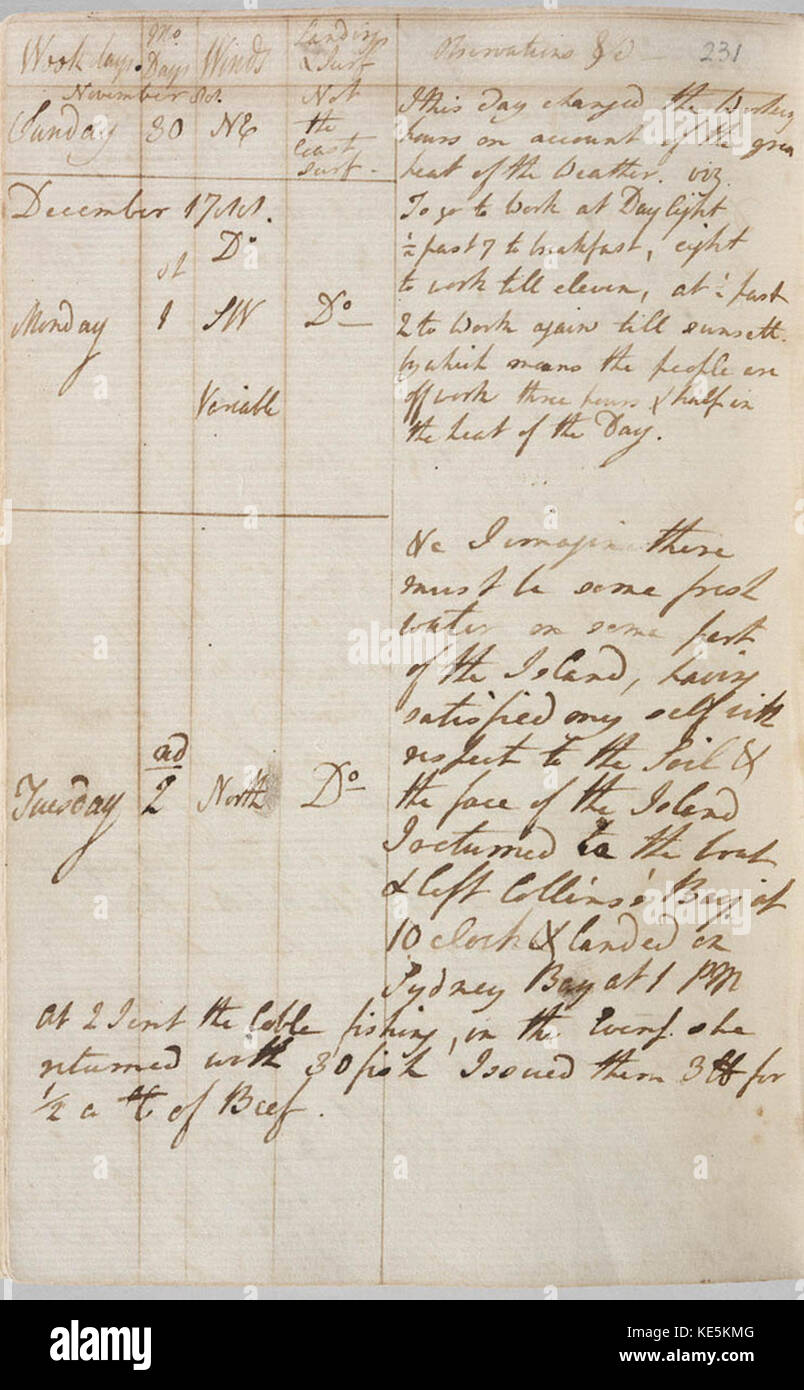 Week days. Mo. Days Winds Landing & Surf Observations &c 231
November
Sunday 30 NE Not the least Surf.
I this day changed the Working
hours on account of the great
heat of the Weather. viz.
December 1788.
To go to Work at Day light
½ past 7 to breakfast, eight
to work till eleven, at ½ past
2 to Work again till sunsett.
by which means the people are
off work three hours & half in
the heat of the Day.
Do
Monday st 1 SW Do
Variable
&c I imagine there
must be some fresh
water on some part
of the Island, having
satisfied my self with
respect to the Soil &
the face of the Island
I returned to the boat
& left Collins's Bay, at
10 clock & landed on
Sydney Bay at 1 PM
Tuesday nd 2 North Do
At 2 Sent the Coble fishing, in the Eveng. she
returned with 30 fish Issued them 3 lb for
½ a lb of Beef.
alamy
alamy
a
Image ID: KE5KMG
www.alamy.com